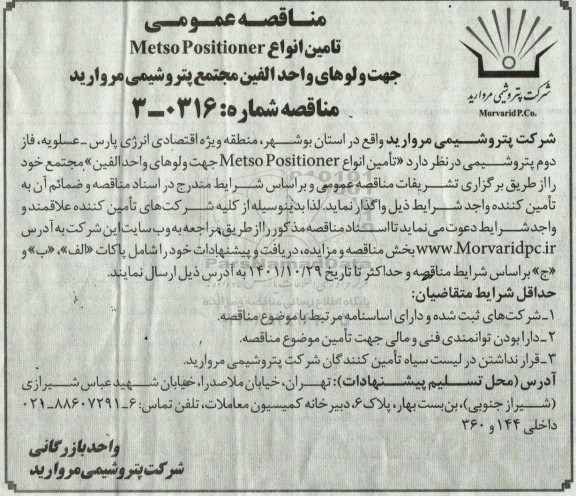 مناقصه عمومی
تامین انواع Metso Positioner
جهت ولوهای واحد الفین مجتمع پتروشیمی مروارید
مناقصه شماره: ۰۳۱۶-۳
شرکت پتروشیمی مروارید
Morvarid P.Co.
شرکت پتروشیمی مروارید واقع در استان بوشهر، منطقه ویژه اقتصادی انرژی پارس -عسلویه، فاز
دوم پتروشیمی در نظر دارد «تأمین انواع Metso Positioner جهت ولوهای واحد الفین» مجتمع خود
را از طریق برگزاری تشریفات مناقصه عمومی و براساس شرایط مندرج در اسناد مناقصه و ضمائم آن به
تأمین کننده واجد شرایط ذیل واگذار نماید. لذا بدینوسیله از کلیه شرکت‌های تأمین کننده علاقمند و
واجد شرایط دعوت می‌نماید تا اسناد مناقصه مذکور را از طریق مراجعه به وب سایت این شرکت به آدرس
www.Morvaridpc.ir بخش مناقصه و مزایده، دریافت و پیشنهادات خود را شامل پاکات «الف»، «ب» و
«ج» براساس شرایط مناقصه و حداکثر تا تاریخ ۱۴۰۱/۱۰/۲۹ به آدرس ذیل ارسال نمایند.
حداقل شرایط متقاضیان:
۱-شرکت‌های ثبت شده و دارای اساسنامه مرتبط با موضوع مناقصه.
۲-دارا بودن توانمندی فنی و مالی جهت تأمین موضوع مناقصه.
۳-قرار نداشتن در لیست سیاه تأمین کنندگان شرکت پتروشیمی مروارید.
آدرس (محل تسلیم پیشنهادات): تهران، خیابان ملاصدرا، خیابان شهید عباس شیرازی
(شیراز جنوبی)، بن‌بست بهار، پلاک ۶، دبیرخانه کمیسیون معاملات، تلفن تماس: ۶-۸۸۶۰۷۲۹۱-۰۲۱
داخلی ۱۴۴ و ۳۶۰
واحد بازرگانی
شرکت پتروشیمی مروارید